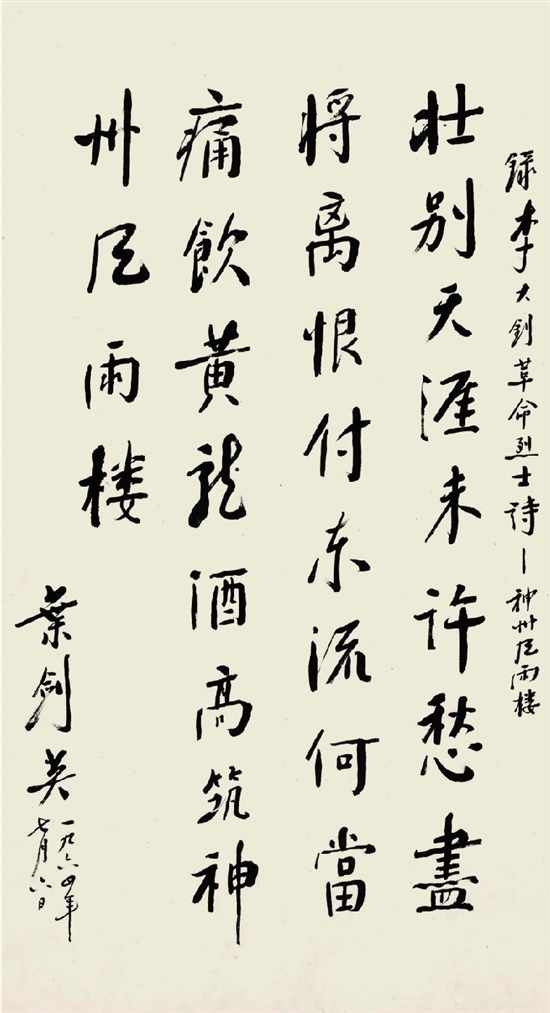 錄李大釗革命烈士詩—神州風雨楼
壯别天涯未许愁盡
将离恨付东流何當
痛飲黄龙酒高筑神
州風雨楼
葉劍英
一九六四年
七月六日